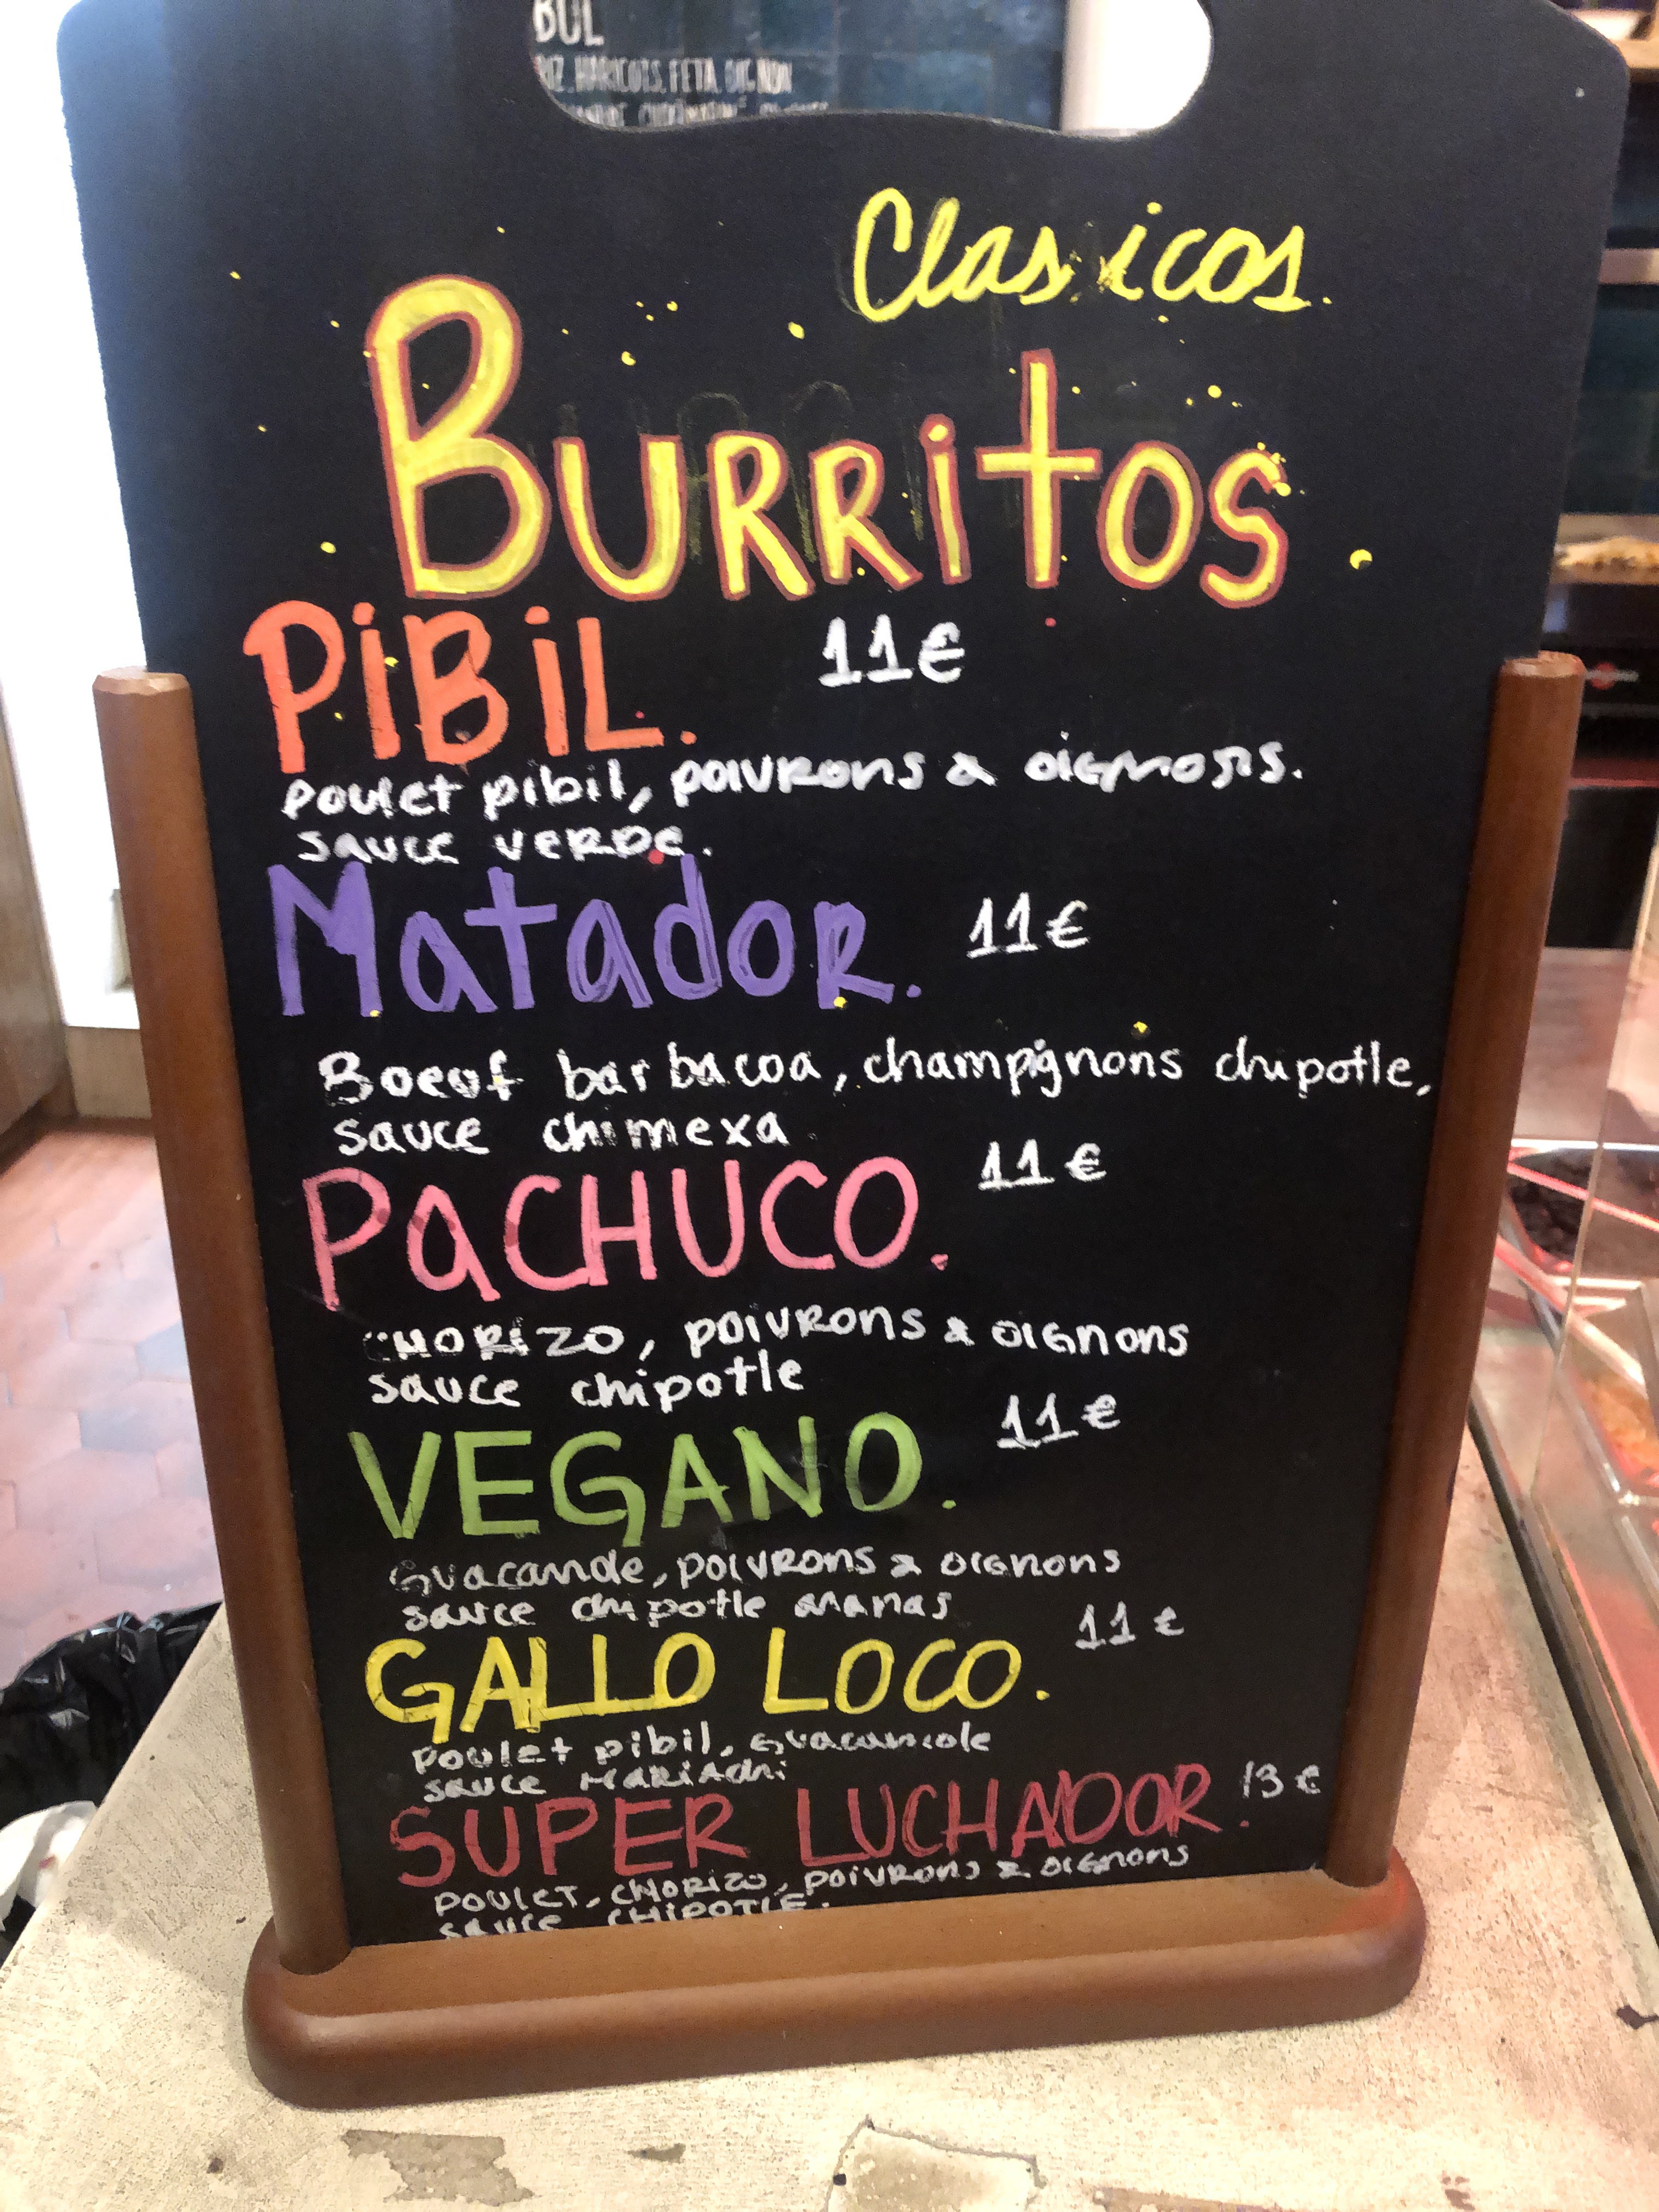 BOL
RIZ, HARICOTS, FETA, OIGNON
Clasicos.
BURRitos
PiBiL. 11€
poulet pibil, poivrons & oignons.
sauce verde.
Matador. 11€
Boeuf barbacoa, champignons chipotle,
sauce chimexa
PACHUCO. 11€
CHORIZO, poivrons & oignons
sauce chipotle
VEGANO. 11€
Guacamole, poivrons & oignons
sauce chipotle ananas
GALLO LOCO. 11€
poulet pibil, guacamole
sauce MARIAchi
SUPER LUCHADOR. 13€
POULET, CHORIZO, poivrons & oignons
sauce CHIPOTLE.